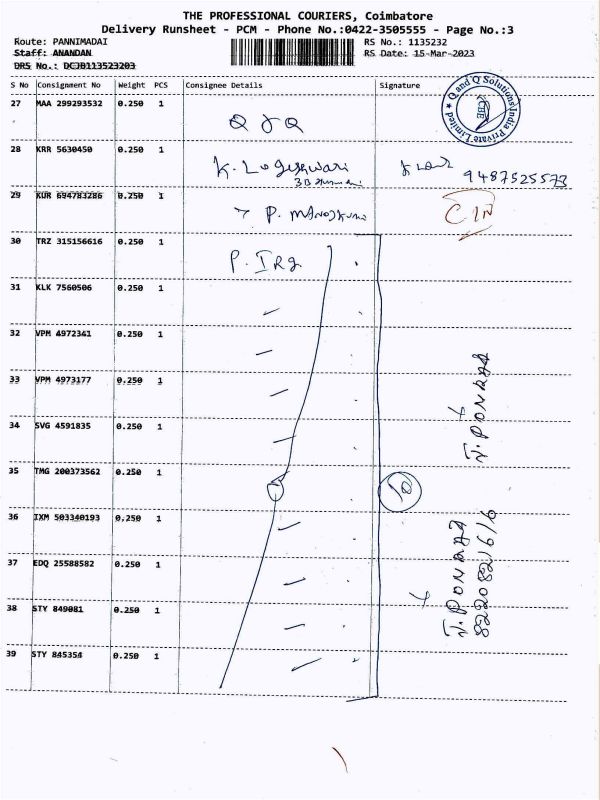 THE PROFESSIONAL COURIERS, Coimbatore
Delivery Runsheet - PCM - Phone No.:0422-3505555 - Page No.:3
Route: PANNIMADAI
RS No.: 1135232
Staff: ANANDAN
RS Date: 15-Mar-2023
DRS No.: DCJ0113523203
S No Consignment No Weight PCS Consignee Details Signature
27 MAA 299293532 0.250 1 Q & Q
Q and Q Solutions India Private Limited ★ CBE
28 KRR 5630450 0.250 1 K. Logeshwari
9487525573
29 KUR 694783286 0.250 1 P. Manojkumar
30 TRZ 315156616 0.250 1 P. IRg
31 KLK 7560506 0.250 1
32 VPM 4972341 0.250 1
33 VPM 4973177 0.250 1
34 SVG 4591835 0.250 1
35 TMG 200373562 0.250 1 10
36 IXM 503340193 0.250 1
37 EDQ 25588582 0.250 1
38 STY 849081 0.250 1
39 STY 845354 0.250 1
J. PONRAJ
J. PONRAJ
8220821616